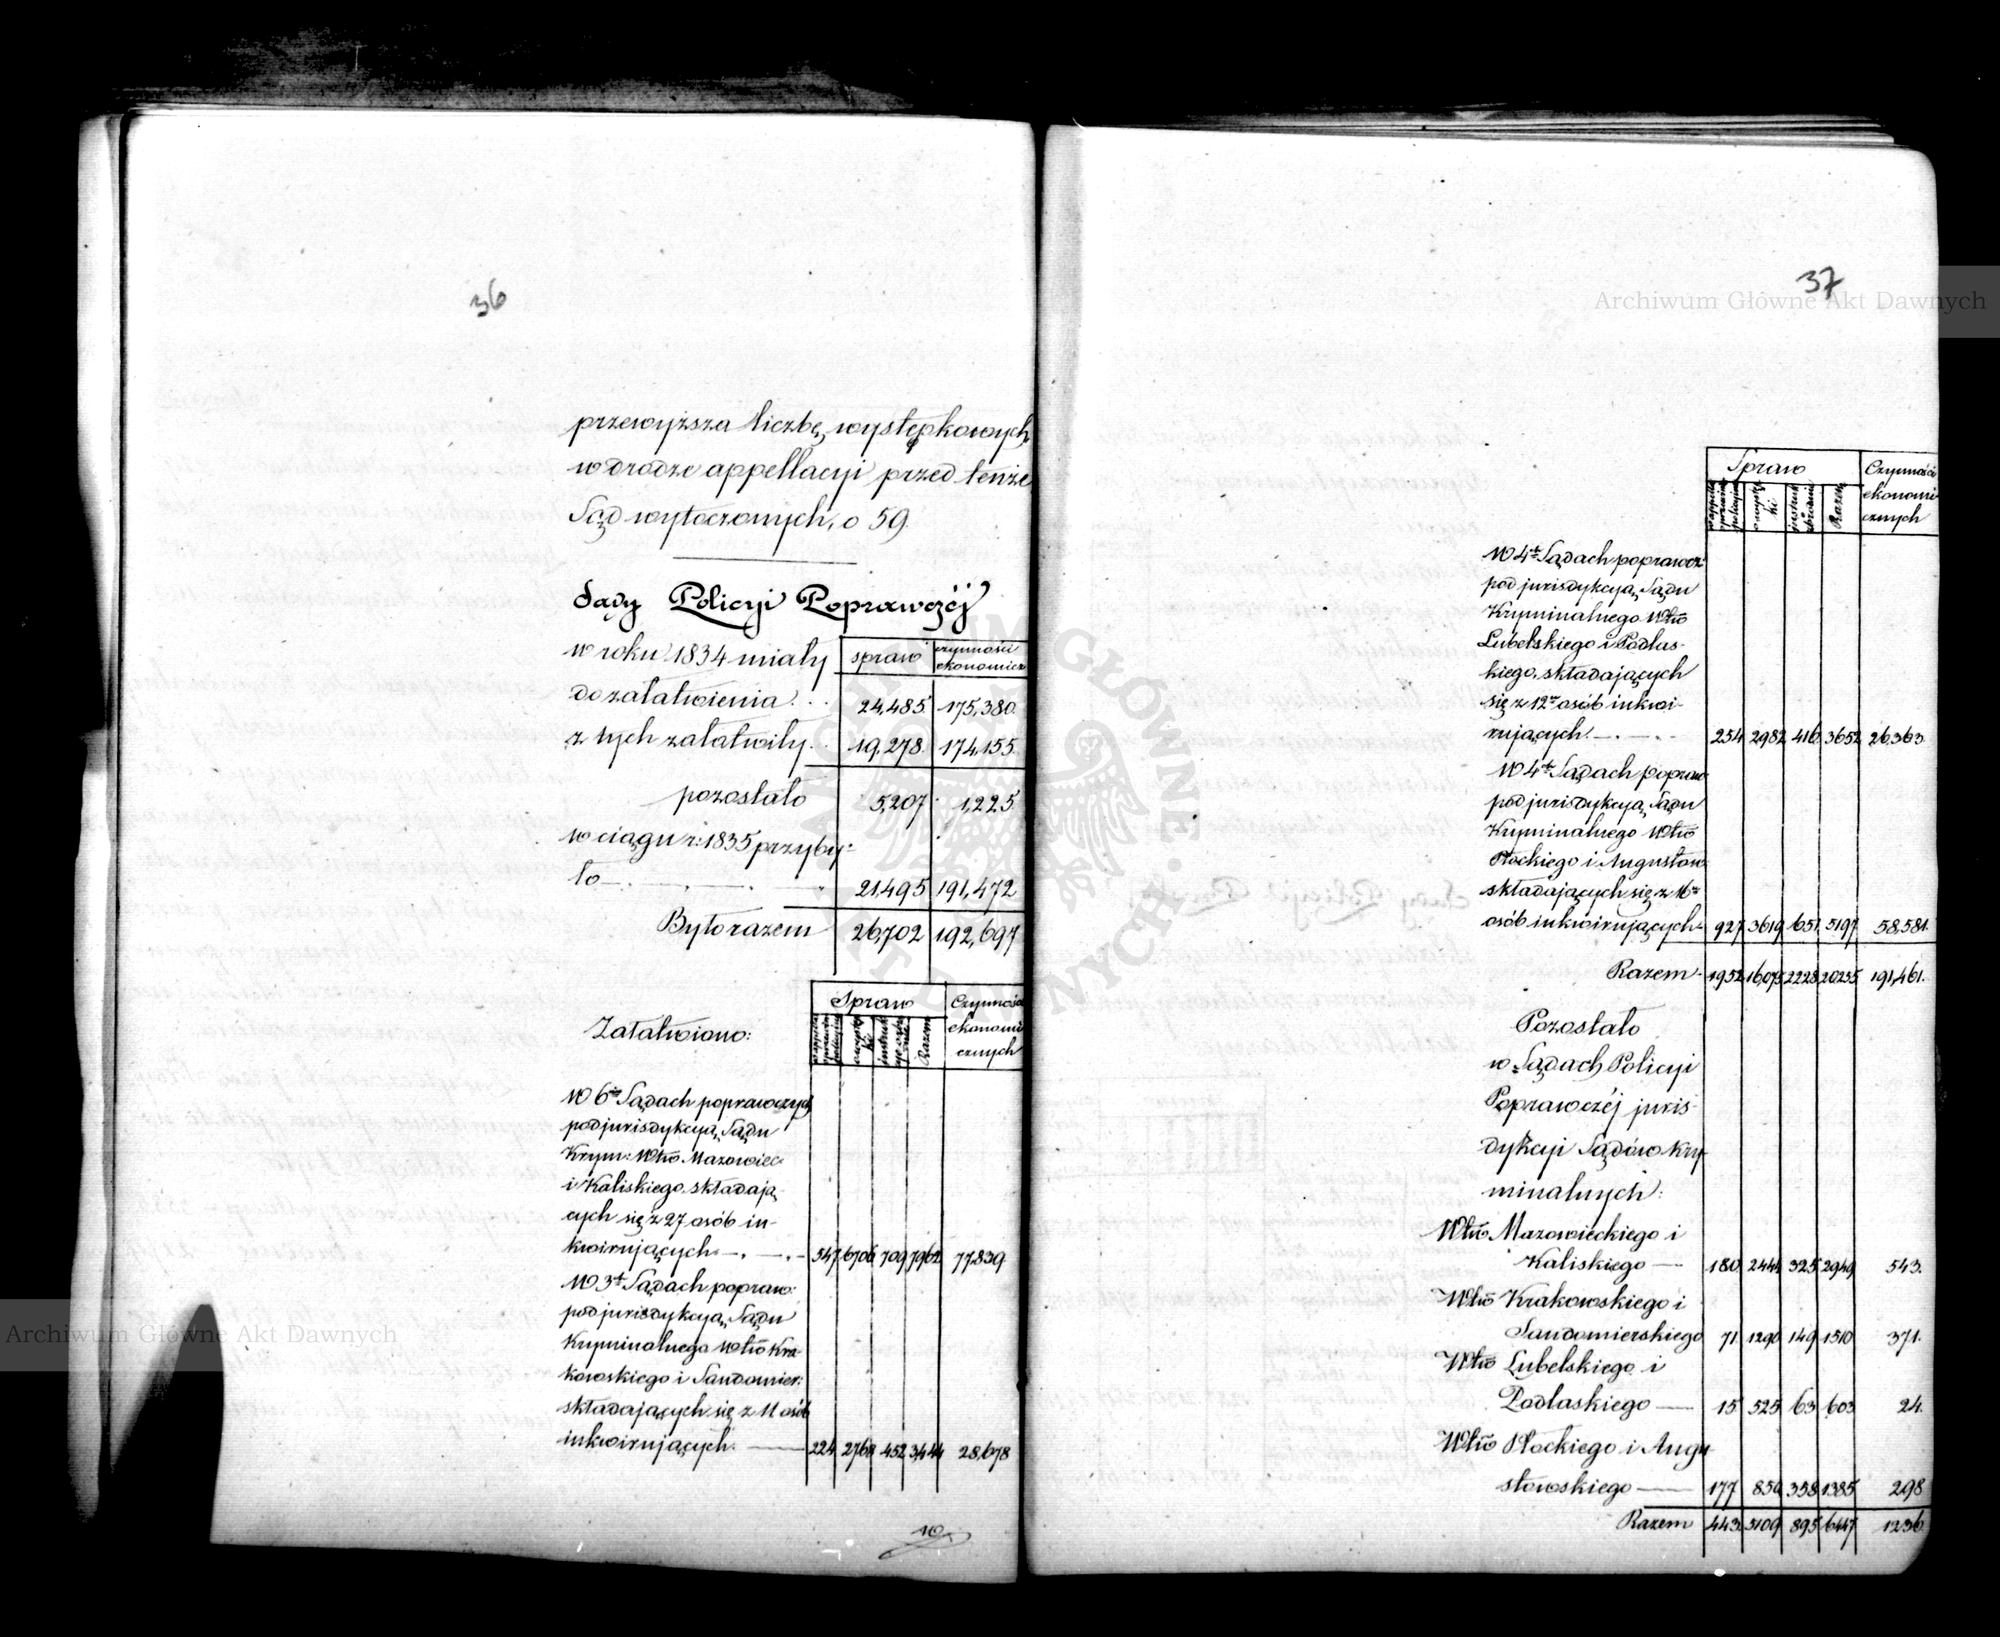 36
przewyższa liczbę występkowych
w drodze appellacyi przed tenże
Sąd wytoczonych, o 59.
Sądy Policyi Poprawczéj
w roku 1834 miały | spraw | czynności ekonomicz
do załatwienia . . . | 24,485 | 175,380.
z tych załatwiły . . | 19,278. | 174,155
pozostało | 5,207 | 1,225
w ciągu r: 1835 przyby-
ło | 21,495 | 191,472
Było razem | 26,702 | 192,697
Załatwiono: | Spraw | Czynności ekonomi cznych
Razem
W 6ciu Sądach poprawczych
pod jurisdykcyą Sądu
Krym: Wtw Mazowiec
i Kaliskiego składają
cych się z 27 osób in-
kwirujących | 547 | 6706 | 709 | 7962 | 77,839.
W 3ch Sądach popraw:
pod jurisdykcyą Sądu
Kryminalnego Wtw Kra-
kowskiego i Sandomier:
składających się z 11 osób
inkwirujących. | 224 | 2768 | 452 | 3444 | 28,678
37
Spraw | Czynności ekonomi cznych
Razem
W 4ch Sądach poprawcz
pod jurisdykcyą Sądu
Kryminalnego Wtw
Lubelskiego i Podlas-
kiego, składających
się z 12tu osób inkwi-
rujących | 254 | 2982 | 416 | 3652 | 26,363
W 4ch Sądach popraw
pod jurisdykcyą Sądu
Kryminalnego Wtw
Płockiego i Augustow
składających się z 16tu
osób inkwirujących | 927 | 3619 | 651 | 5197 | 58,581.
Razem | 1952 | 16,075 | 2228 | 20255 | 191,461.
Pozostało
w Sądach Policyi
Poprawczéj juris-
dykcyi Sądów Kry-
minalnych:
Wtw Mazowieckiego i
Kaliskiego | 180 | 2444 | 325 | 2949 | 543.
Wtw Krakowskiego i
Sandomierskiego | 71 | 1290 | 149 | 1510 | 371.
Wtw Lubelskiego i
Podlaskiego | 15 | 525 | 63 | 603 | 24.
Wtw Płockiego i Augu
stowskiego | 177 | 850 | 358 | 1385 | 298
Razem | 443 | 5109 | 895 | 6447 | 1236
Archiwum Główne Akt Dawnych
Archiwum Główne Akt Dawnych